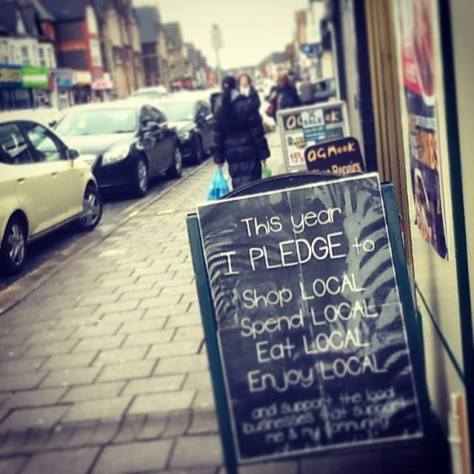 This year
I PLEDGE to
Shop LOCAL
Spend LOCAL
Eat LOCAL
Enjoy LOCAL
and support the local
businesses that support
me & my community